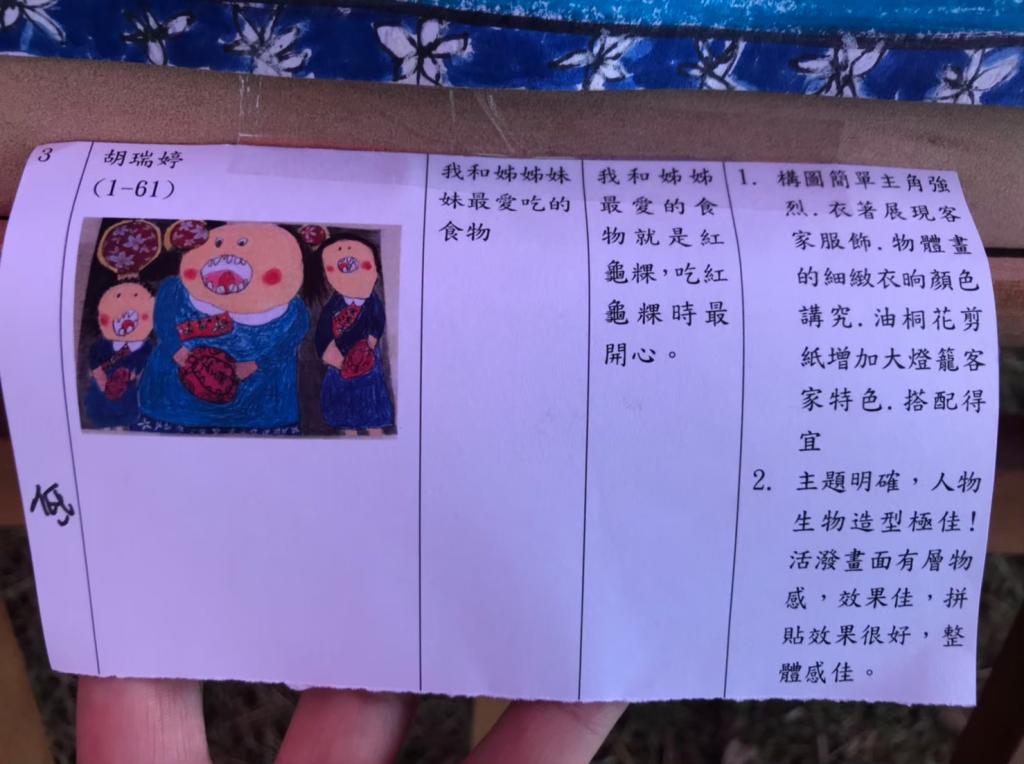 3
胡瑞婷
(1-61)
我和姊姊妹
妹最愛吃的
食物
我和姊姊
最愛的食
物就是紅
龜粿,吃紅
龜粿時最
開心。
1. 構圖簡單主角強
烈.衣著展現客
家服飾.物體畫
的細緻衣晌顏色
講究.油桐花剪
紙增加大燈籠客
家特色.搭配得
宜
2. 主題明確,人物
生物造型極佳!
活潑畫面有層物
感,效果佳,拼
貼效果很好,整
體感佳。